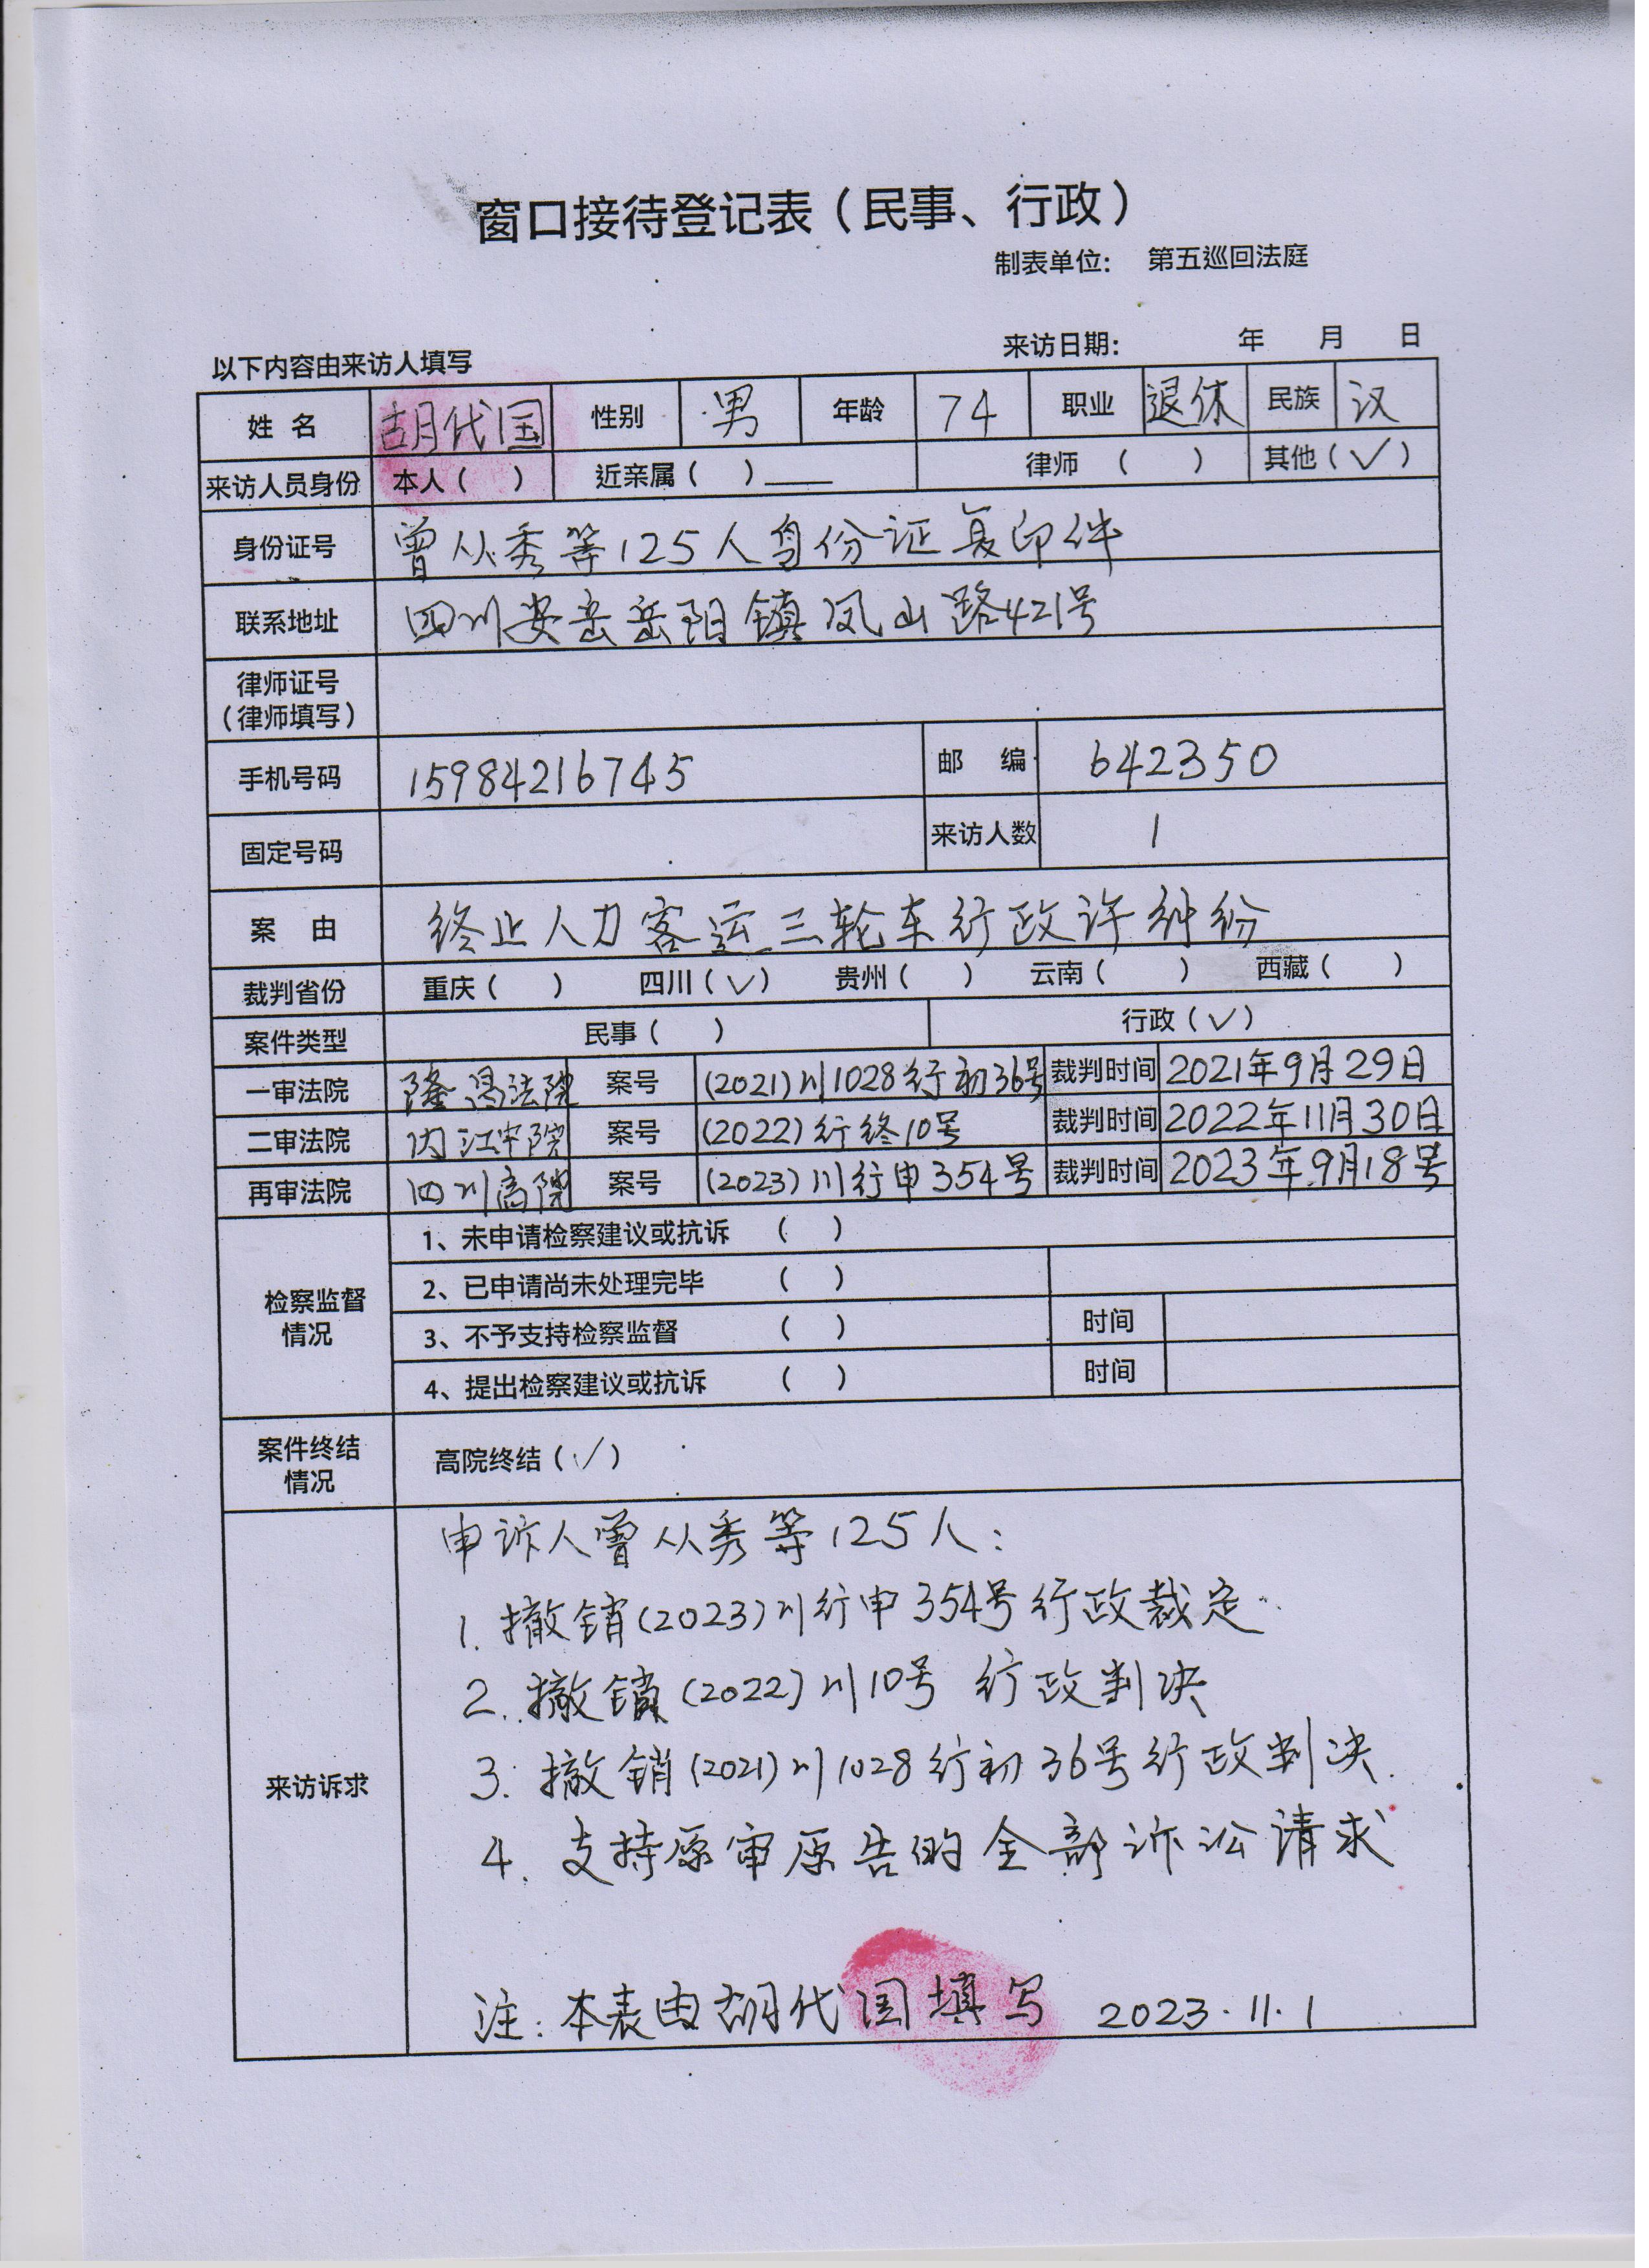 窗口接待登记表（民事、行政）
制表单位： 第五巡回法庭
以下内容由来访人填写 来访日期： 年 月 日
姓名 胡代国 性别 男 年龄 74 职业 退休 民族 汉
来访人员身份 本人（ ） 近亲属（ ）____ 律师（ ） 其他（√）
身份证号 曾从秀等125人身份证复印件
联系地址 四川安岳岳阳镇凤山路421号
律师证号
（律师填写）
手机号码 15984216745 邮编 642350
固定号码 来访人数 1
案由 终止人力客运三轮车行政许纠纷
裁判省份 重庆（ ） 四川（√） 贵州（ ） 云南（ ） 西藏（ ）
案件类型 民事（ ） 行政（√）
一审法院 隆昌法院 案号 (2021)川1028行初36号 裁判时间 2021年9月29日
二审法院 内江中院 案号 (2022)行终10号 裁判时间 2022年11月30日
再审法院 四川高院 案号 (2023)川行申354号 裁判时间 2023年9月18号
检察监督
情况
1、未申请检察建议或抗诉 （ ）
2、已申请尚未处理完毕 （ ）
3、不予支持检察监督 （ ） 时间
4、提出检察建议或抗诉 （ ） 时间
案件终结
情况
高院终结（√）
来访诉求
申诉人曾从秀等125人：
1. 撤销(2023)川行申354号行政裁定
2. 撤销(2022)川10号 行政判决
3. 撤销(2021)川1028行初36号行政判决.
4. 支持原审原告的全部诉讼请求
注：本表由胡代国填写 2023.11.1